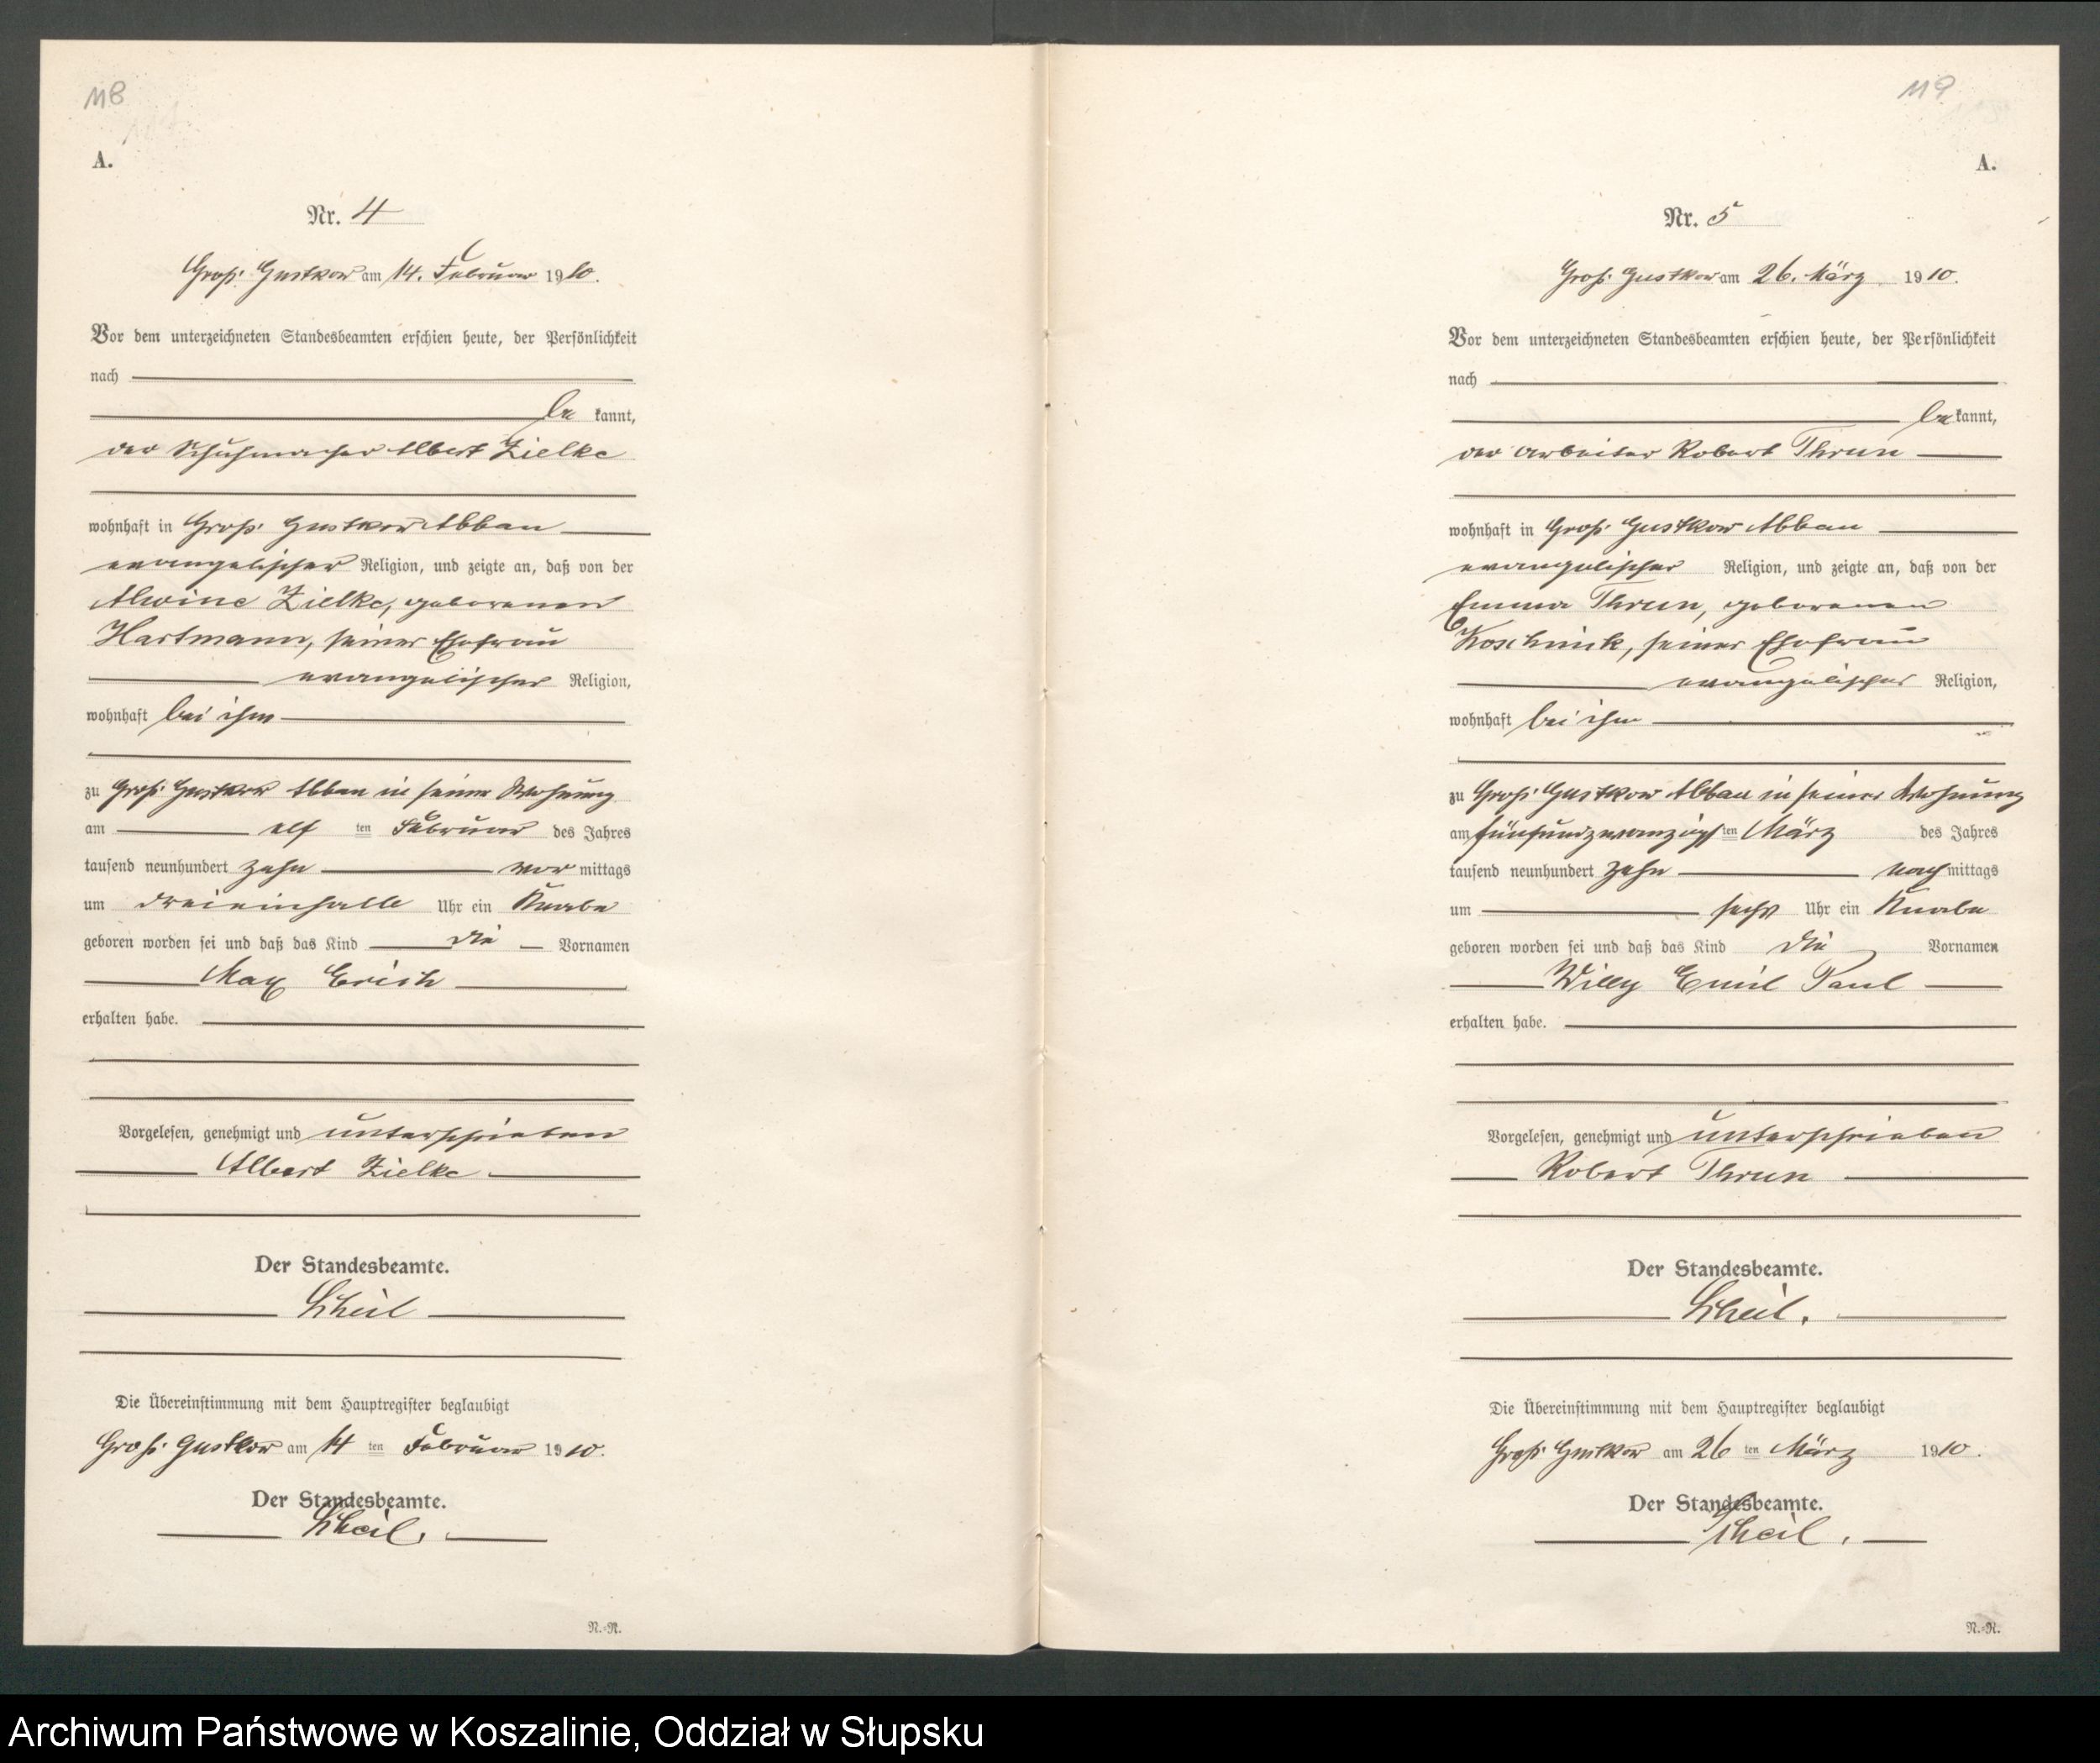 118
A.
Nr. 4
Groß Gustkow am 14. Februar 1910.
Vor dem unterzeichneten Standesbeamten erschien heute, der Persönlichkeit
nach
be kannt,
der Schuhmacher Albert Zielke
wohnhaft in Groß Gustkow Abbau
evangelischer Religion, und zeigte an, daß von der
Alwine Zielke, geborenen
Hartmann, seiner Ehefrau
evangelischer Religion,
wohnhaft bei ihm
zu Groß Gustkow Abbau in seiner Wohnung
am elf ten Februar des Jahres
tausend neunhundert zehn vor mittags
um dreieinhalb Uhr ein Knabe
geboren worden sei und daß das Kind die Vornamen
Max Erich
erhalten habe.
Vorgelesen, genehmigt und unterschrieben
Albert Zielke
Der Standesbeamte.
Scheil
Die Übereinstimmung mit dem Hauptregister beglaubigt
Groß Gustkow am 14 ten Februar 1910.
Der Standesbeamte.
Scheil.
N.-R.
119
A.
Nr. 5
Groß Gustkow am 26. März 1910.
Vor dem unterzeichneten Standesbeamten erschien heute, der Persönlichkeit
nach
be kannt,
der Arbeiter Robert Thrun
wohnhaft in Groß Gustkow Abbau
evangelischer Religion, und zeigte an, daß von der
Emma Thrun, geborenen
Koschnick, seiner Ehefrau
evangelischer Religion,
wohnhaft bei ihm
zu Groß Gustkow Abbau in seiner Wohnung
am fünfundzwanzigsten März des Jahres
tausend neunhundert zehn nach mittags
um sechs Uhr ein Knabe
geboren worden sei und daß das Kind die Vornamen
Willy Emil Paul
erhalten habe.
Vorgelesen, genehmigt und unterschrieben
Robert Thrun
Der Standesbeamte.
Scheil.
Die Übereinstimmung mit dem Hauptregister beglaubigt
Groß Gustkow am 26 ten März 1910.
Der Standesbeamte.
Scheil.
N.-R.
Archiwum Państwowe w Koszalinie, Oddział w Słupsku